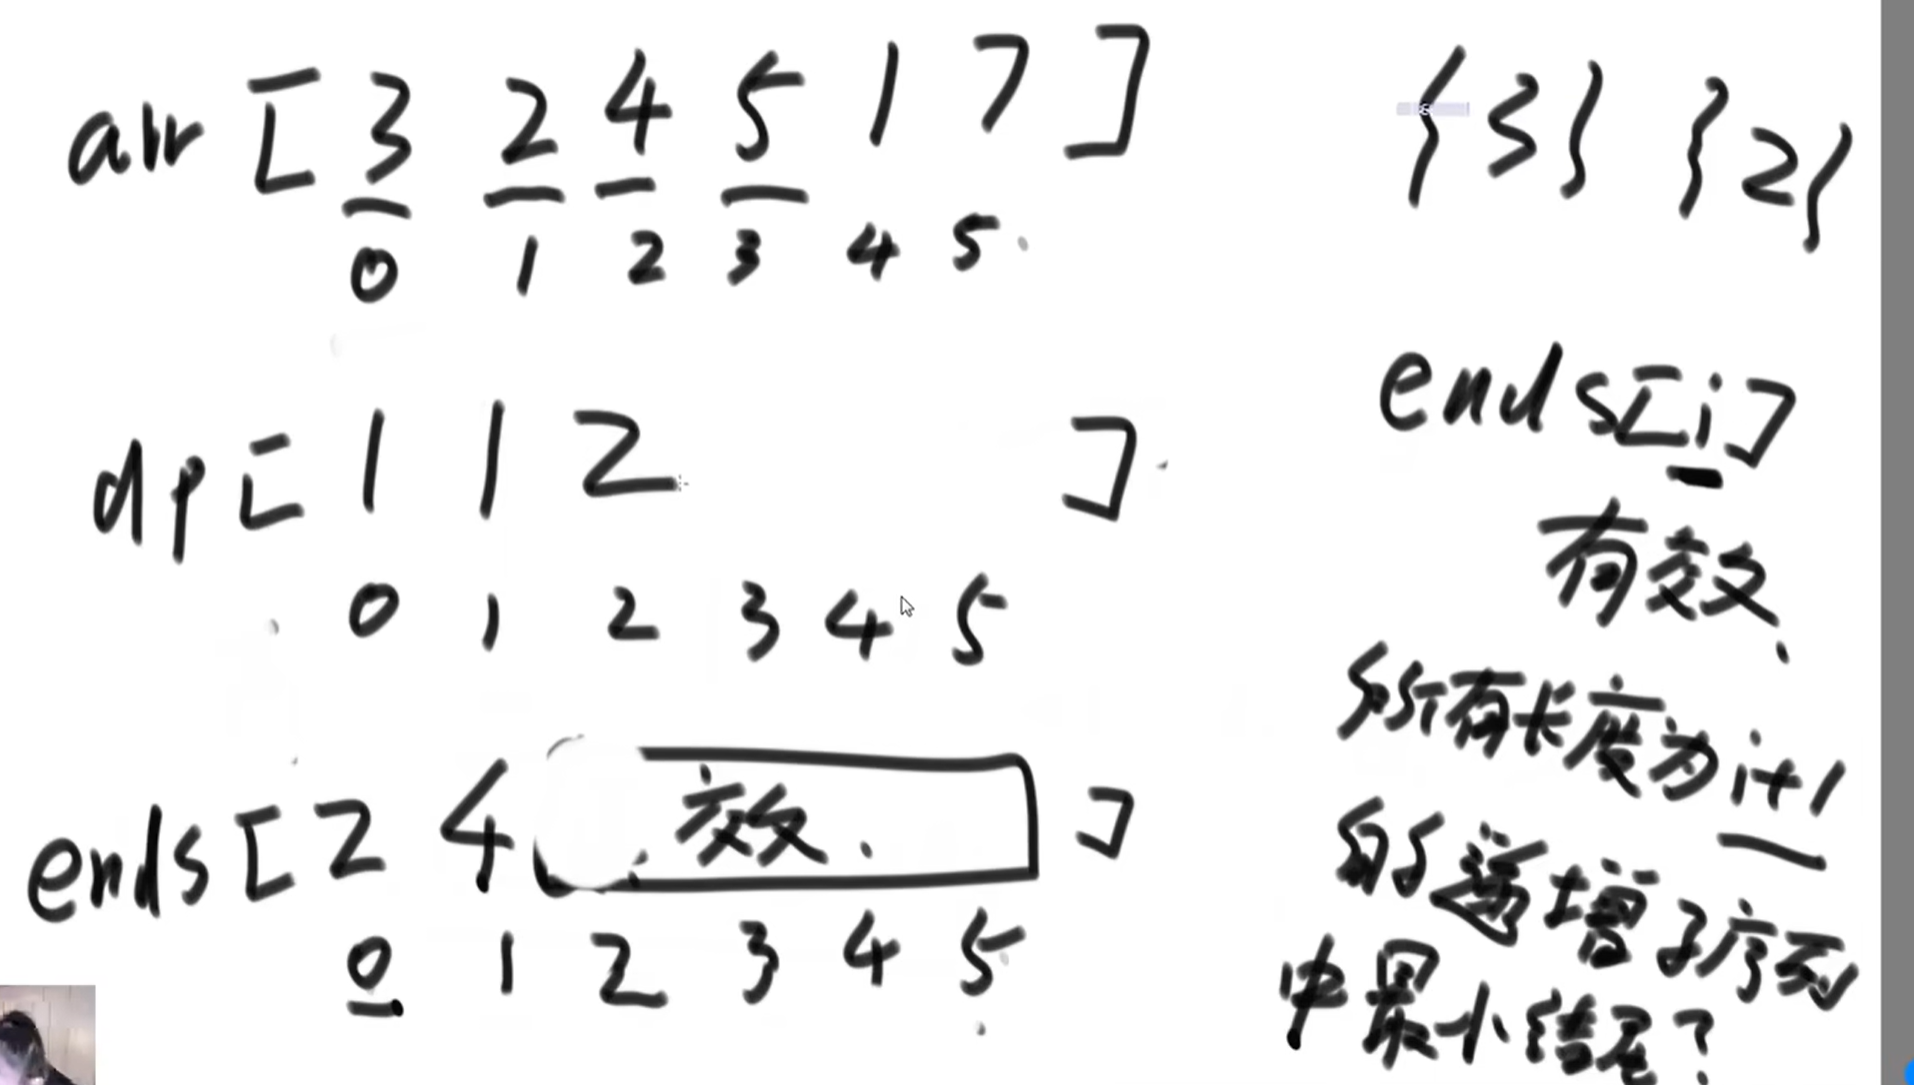 arr [ 3 2 4 5 1 7 ]
0 1 2 3 4 5
{3} {2}
dp [ 1 1 2 ]
0 1 2 3 4 5
ends [ 2 4 效 ]
0 1 2 3 4 5
ends[i]
有效
所有长度为i+1
的递增子序列
中最小结尾?